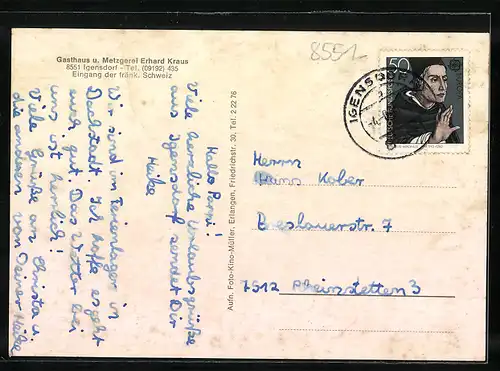 Gasthaus u. Metzgerei Erhard Kraus
8551 Igensdorf - Tel. (09192) 435
Eingang der fränk. Schweiz
8551
50
IGENSDORF
Hallo Pappi!
Viele herzliche Urlaubsgrüße
aus Igensdorf sendet Dir
Heike
Wir sind im Ferienlager in
Dachstadt. Ich hoffe es geht
euch gut. Das Wetter bei
uns ist herrlich!
Viele Grüße an Christa u.
die anderen von Deiner Heike
Aufn. Foto-Kino-Müller, Erlangen, Friedrichstr. 30, Tel. 2 22 76
Herrn
Hans Kober
Breslauerstr. 7
7512 Rheinstetten 3